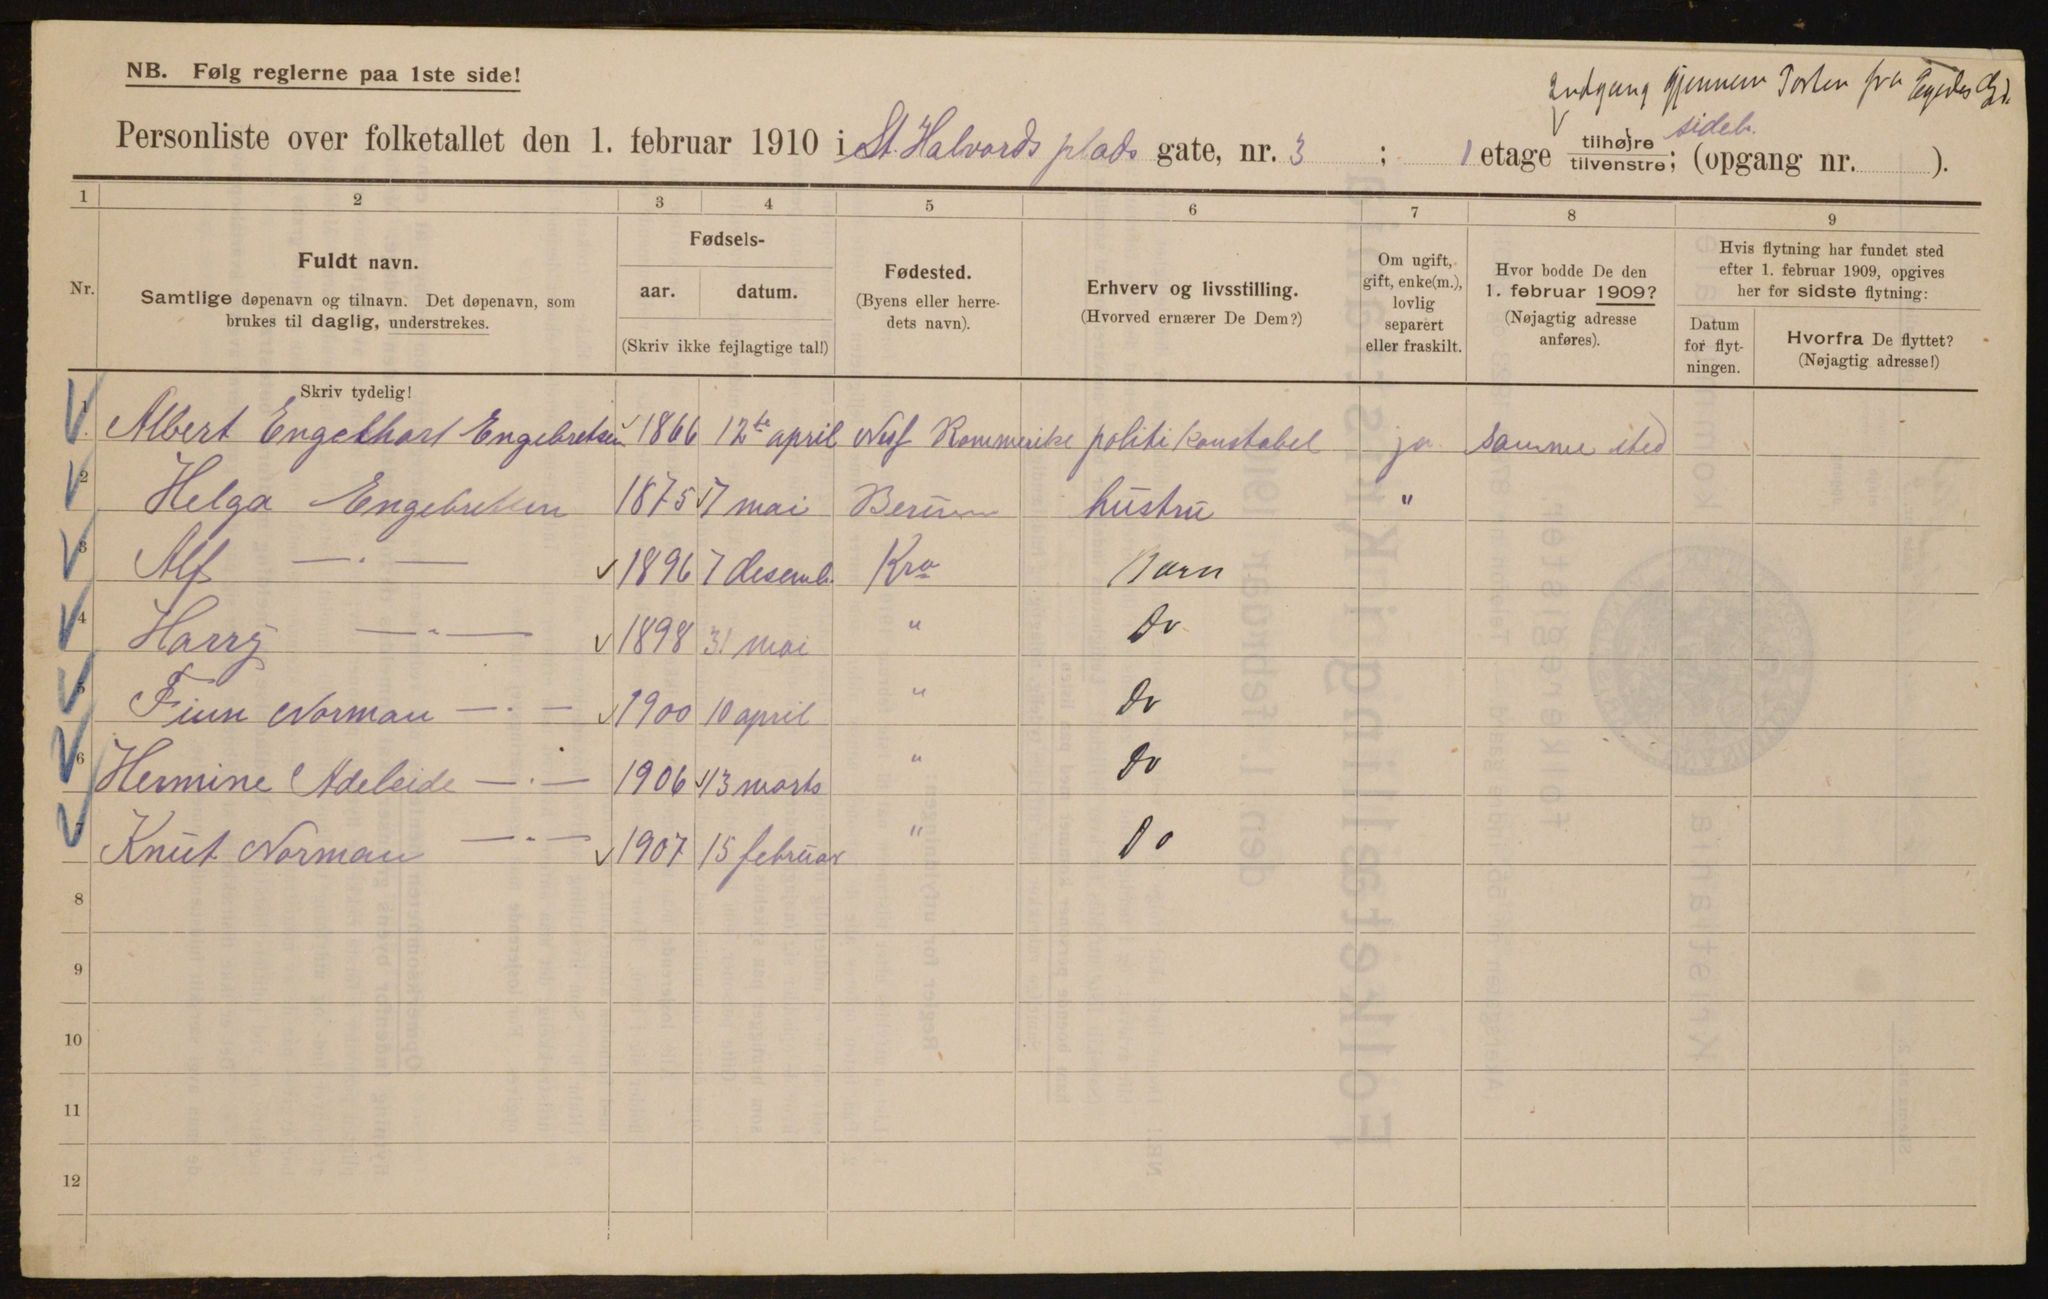 NB. Følg reglerne paa 1ste side!
Indgang gjennem Porten fra Egedes Gd.
sideb.
Personliste over folketallet den 1. februar 1910 i St. Halvards plads gate, nr. 3 ; 1 etage tilhøjre tilvenstre; (opgang nr. ).
1 2 3 4 5 6 7 8 9
Nr.
Fuldt navn.
Samtlige døpenavn og tilnavn. Det døpenavn, som
brukes til daglig, understrekes.
Fødsels-
aar. datum.
(Skriv ikke fejlagtige tal!)
Fødested.
(Byens eller herre-
dets navn).
Erhverv og livsstilling.
(Hvorved ernærer De Dem?)
Om ugift,
gift, enke(m.),
lovlig
separert
eller fraskilt.
Hvor bodde De den
1. februar 1909?
(Nøjagtig adresse
anføres).
Hvis flytning har fundet sted
efter 1. februar 1909, opgives
her for sidste flytning:
Datum
for flyt-
ningen.
Hvorfra De flyttet?
(Nøjagtig adresse!)
Skriv tydelig!
1 Albert Engelhart Engebretsen 1866 12te april Nes Rommerike politi konstabel ja samme sted
2 Helga Engebretsen 1875 7 mai Berum hustru "
3 Alf —·— 1896 7 desemb. Kra Barn
4 Harry —·— 1898 31 mai " Do
5 Finn Norman —·— 1900 10 april " Do
6 Hermine Adeleide —·— 1906 13 marts " Do
7 Knut Norman —·— 1907 15 februar " Do
8
9
10
11
12